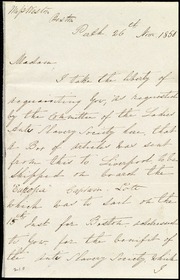 Miss Weston
Boston
Perth 26th Nov. 1851
Madam
I take the liberty of
acquainting you, as requested
by the Committee of the Ladies
Anti Slavery Society here, that
a Box of articles was sent
from this to Liverpool to be
shipped on board the
"Europa" Captain Lott
which was to sail on the
15th Inst for Boston addressed
to you, for the benefit of
the Anti Slavery Society which